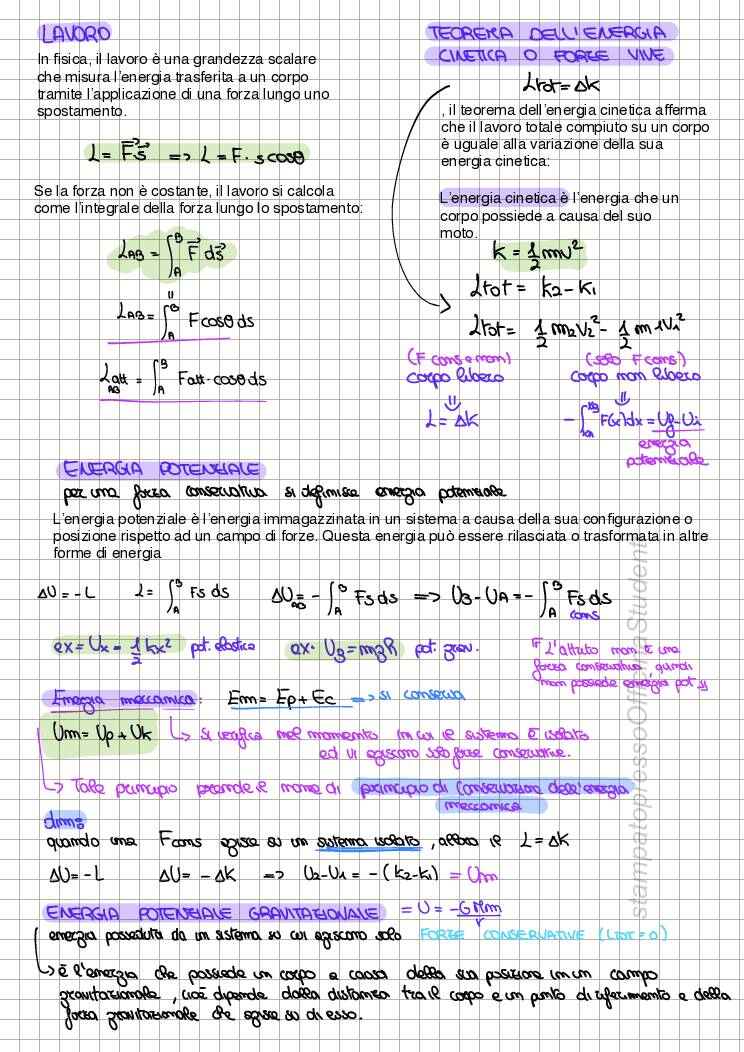 LAVORO
In fisica, il lavoro è una grandezza scalare
che misura l'energia trasferita a un corpo
tramite l'applicazione di una forza lungo uno
spostamento.
L = F⃗s⃗ => L = F · s cosθ
Se la forza non è costante, il lavoro si calcola
come l'integrale della forza lungo lo spostamento:
L_AB = ∫_A^B F⃗ ds⃗
=
L_AB = ∫_A^B F cosθ ds
L_att AB = ∫_A^B Fatt · cosθ ds
TEOREMA DELL'ENERGIA
CINETICA O FORZE VIVE
Ltot = ΔK
, il teorema dell'energia cinetica afferma
che il lavoro totale compiuto su un corpo
è uguale alla variazione della sua
energia cinetica:
L'energia cinetica è l'energia che un
corpo possiede a causa del suo
moto.
K = 1/2 mv²
Ltot = K2 - K1
Ltot = 1/2 m2V2² - 1/2 m1V1²
(F cons e non) (solo F cons)
corpo libero corpo non libero
L = ΔK - ∫_xA^xB F(x)dx = Uf - Ui
energia
potenziale
ENERGIA POTENZIALE
per una forza conservativa si definisce energia potenziale
L'energia potenziale è l'energia immagazzinata in un sistema a causa della sua configurazione o
posizione rispetto ad un campo di forze. Questa energia può essere rilasciata o trasformata in altre
forme di energia
ΔU = - L L = ∫_A^B Fs ds ΔU_AB = - ∫_A^B Fs ds => UB - UA = - ∫_A^B Fs ds
cons
ex = Ux = 1/2 kx² pot. elastica ex. Ug = mgh pot. grav.
"L'attrito non è una
forza conservativa, quindi
non possiede energia pot."
Energia meccanica: Em = Ep + Ec => si conserva
Um = Up + Uk si verifica nel momento in cui il sistema è isolato
ed vi agiscono solo forze conservative.
Tale principio prende il nome di principio di conservazione dell'energia
meccanica
dim:
quando una Fcons agisce su un sistema isolato, allora il L = ΔK
ΔU = - L ΔU = - ΔK => U2 - U1 = - (K2 - K1) = Um
ENERGIA POTENZIALE GRAVITAZIONALE = U = -GMm/r
energia posseduta da un sistema su cui agiscono solo FORZE CONSERVATIVE (Ltot = 0)
è l'energia che possiede un corpo a causa della sua posizione in un campo
gravitazionale, cioè dipende dalla distanza tra il corpo e un punto di riferimento e della
forza gravitazionale che agisce su di esso.
stampatopressoOfficinaStudenti